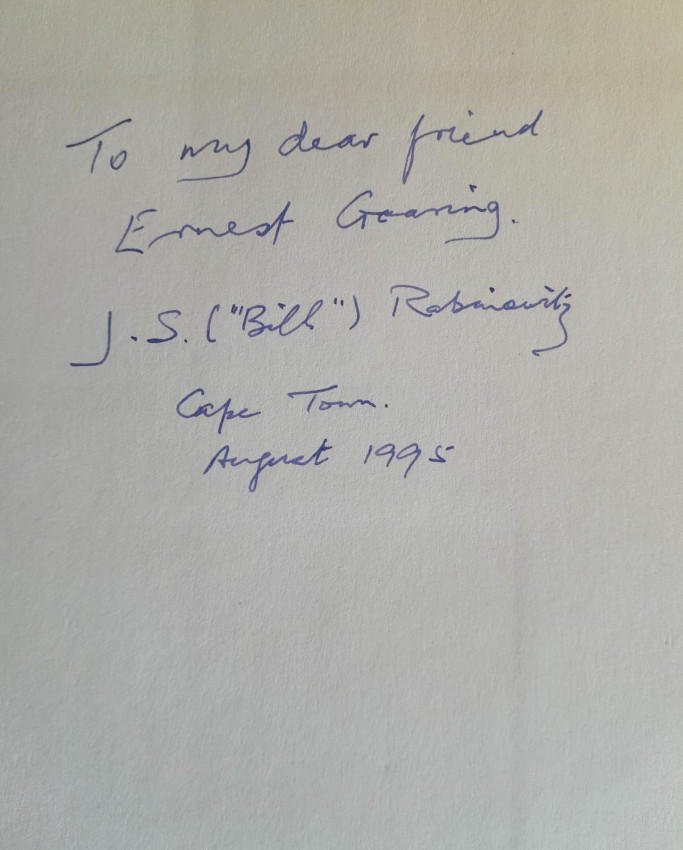 To my dear friend
Ernest Gaaning.
J.S. ("Bill") Rabinowitz
Cape Town.
August 1995